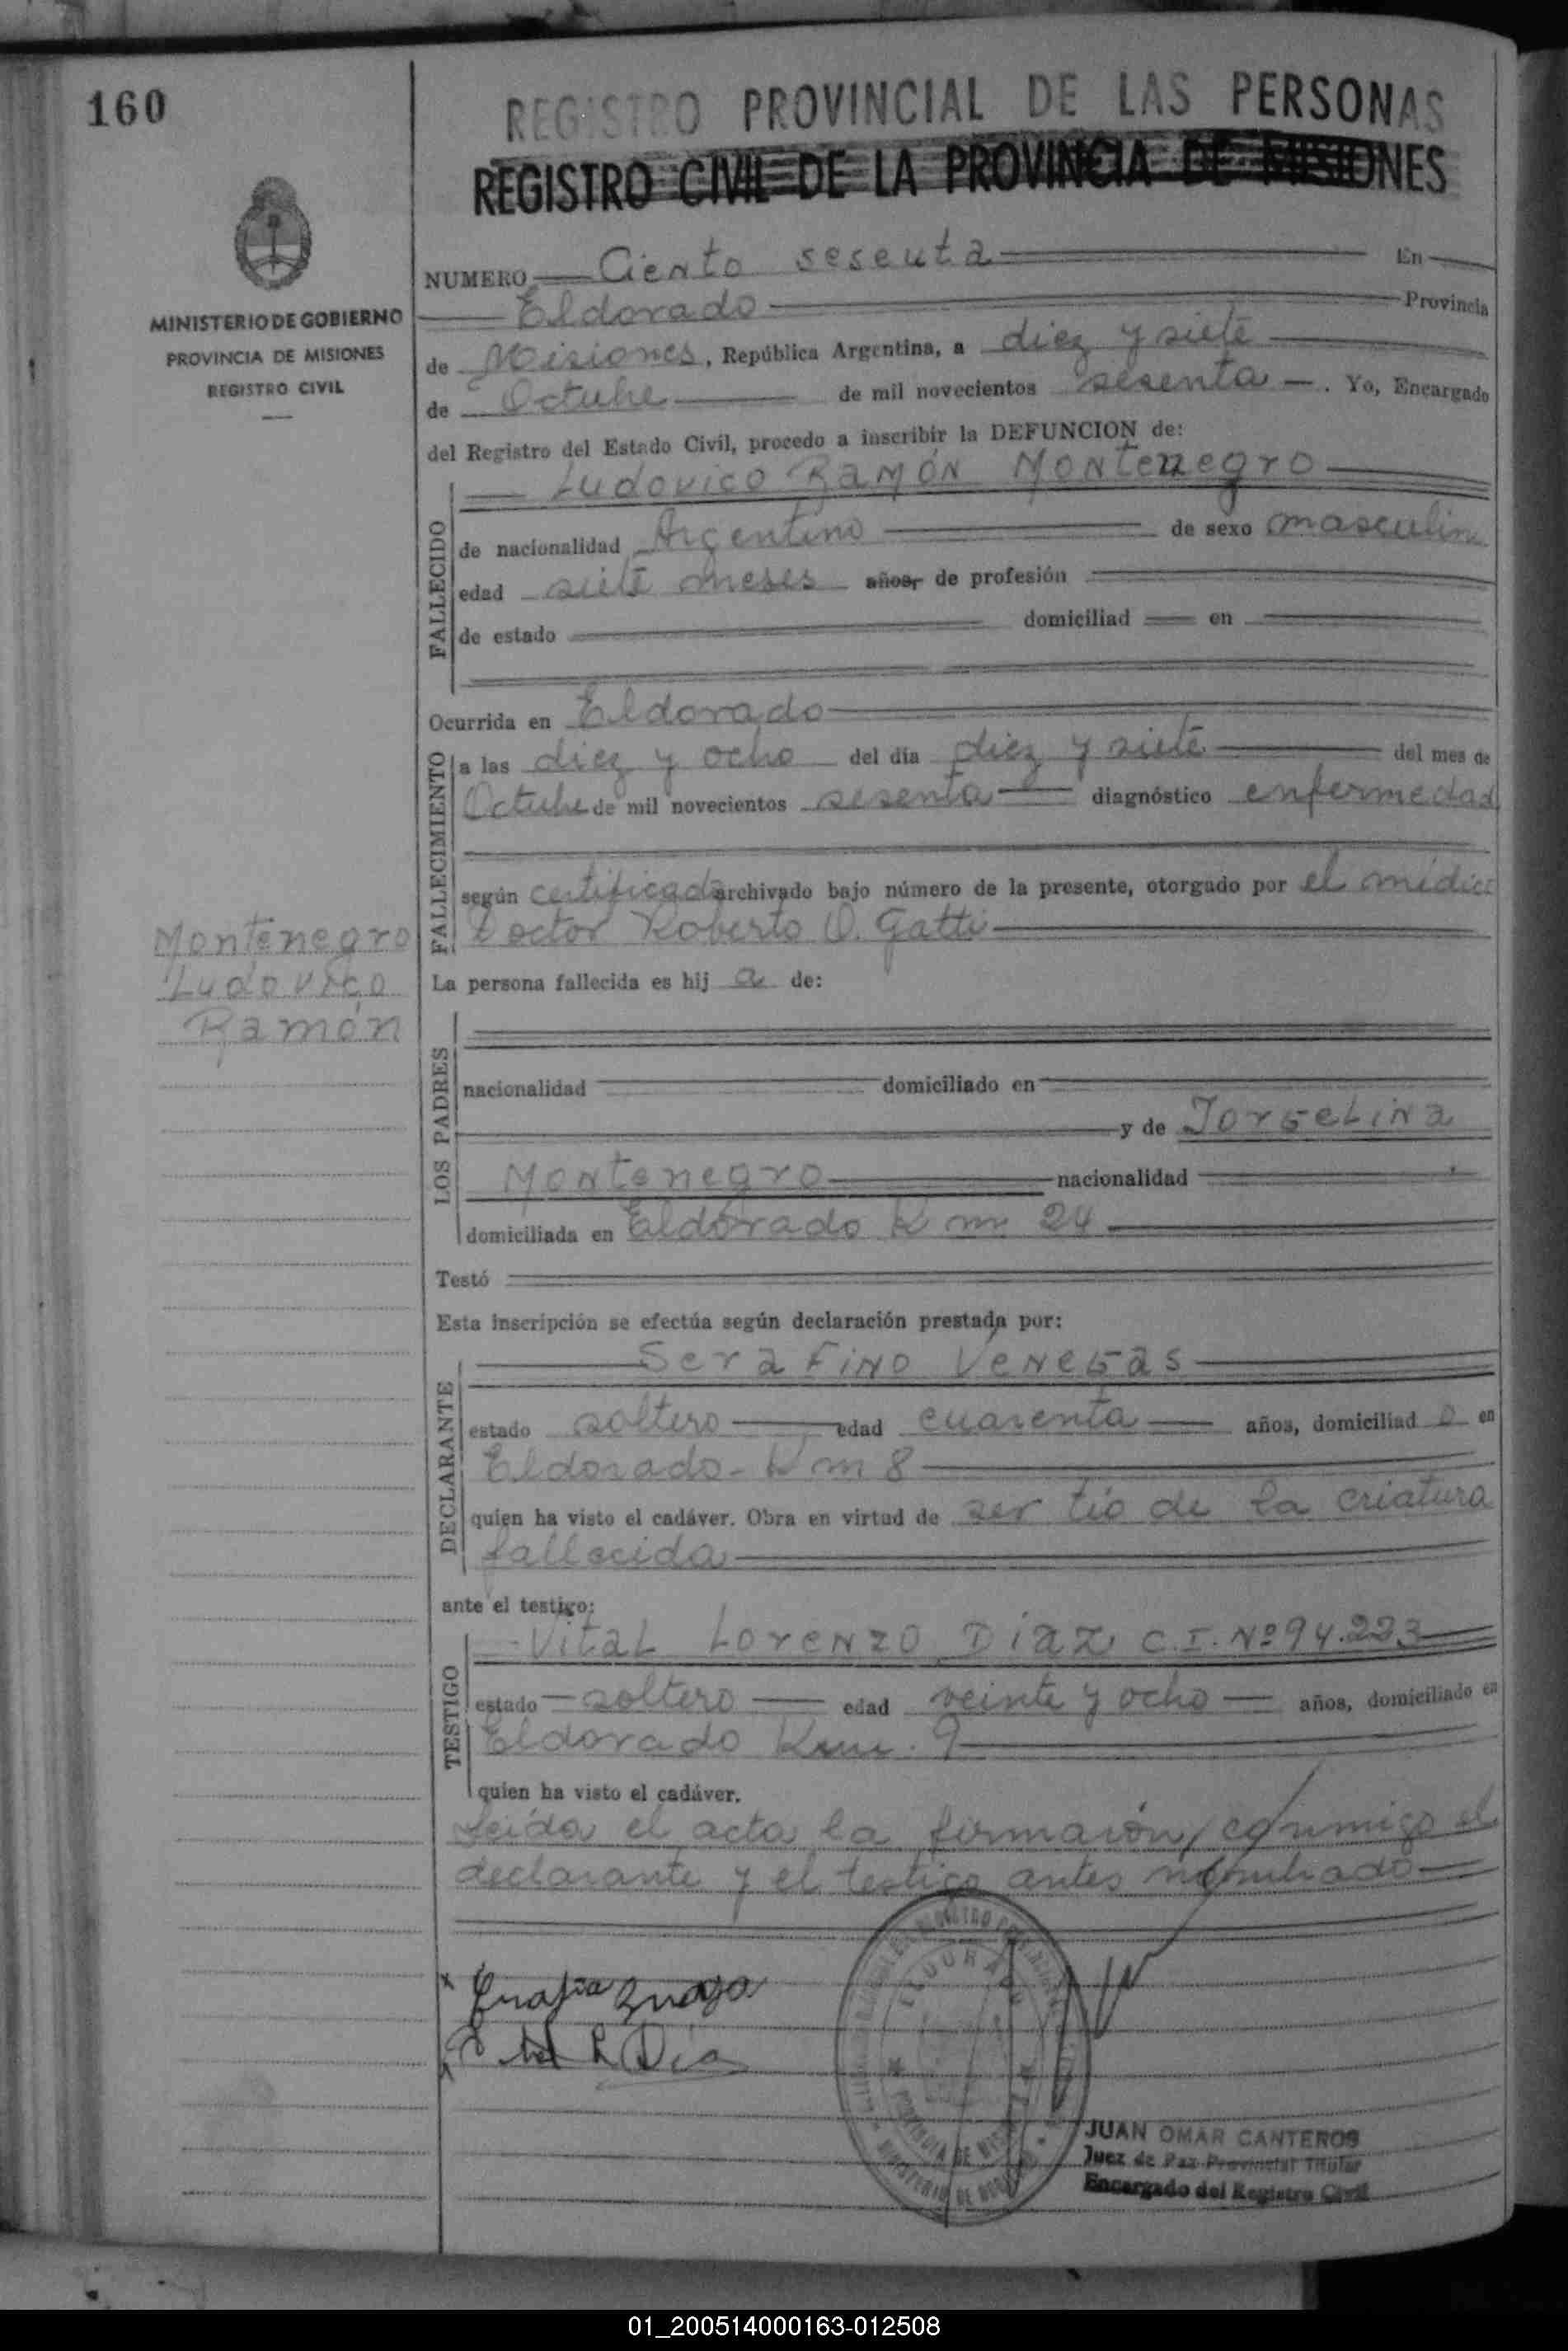 160
REGISTRO PROVINCIAL DE LAS PERSONAS
REGISTRO CIVIL DE LA PROVINCIA DE MISIONES
MINISTERIO DE GOBIERNO
PROVINCIA DE MISIONES
REGISTRO CIVIL
NUMERO Ciento sesenta En
Eldorado Provincia
de Misiones, República Argentina, a diez y siete
de Octubre de mil novecientos sesenta. Yo, Encargado
del Registro del Estado Civil, procedo a inscribir la DEFUNCION de:
Ludovico Ramón Montenegro
FALLECIDO
de nacionalidad Argentino de sexo masculino
edad siete meses años, de profesión
de estado domiciliad en
Ocurrida en Eldorado
FALLECIMIENTO
a las diez y ocho del día diez y siete del mes de
Octubre de mil novecientos sesenta diagnóstico enfermedad
según certificado archivado bajo número de la presente, otorgado por el médico
Doctor Roberto O. Gatti
Montenegro
Ludovico
Ramón
La persona fallecida es hij a de:
LOS PADRES
nacionalidad domiciliado en
y de Jorgelina
Montenegro nacionalidad
domiciliada en Eldorado Km 24
Testó
Esta inscripción se efectúa según declaración prestada por:
Serafino Venegas
DECLARANTE
estado soltero edad cuarenta años, domiciliad o en
Eldorado - Km 8
quien ha visto el cadáver. Obra en virtud de ser tío de la criatura
fallecida
ante el testigo:
Vital Lorenzo Díaz C.I. Nº 94.223
TESTIGO
estado soltero edad veinte y ocho años, domiciliado en
Eldorado Km. 9
quien ha visto el cadáver.
Leída el acta la firmaron, conmigo el
declarante y el testigo antes nombrado
JUAN OMAR CANTEROS
Juez de Paz Provincial Titular
Encargado del Registro Civil
01_200514000163-012508